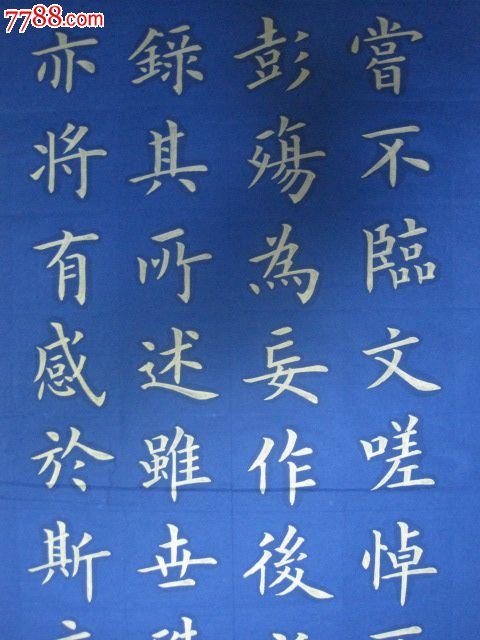 7788.com
嘗不臨文嗟悼
彭殤為妄作後
錄其所述雖世
亦將有感於斯